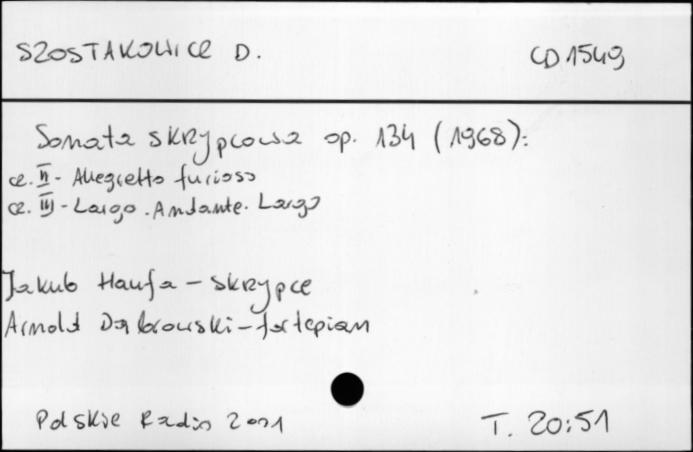 SZOSTAKOWICZ D. CD 1549
Sonata skrypcowa op. 134 (1968):
cz. II - Allegretto furioso
cz. III - Largo. Andante. Largo
Jakub Haufa - skrzypce
Arnold Dąbrowski - fortepian
Polskie Radio 2001 T. 20:51